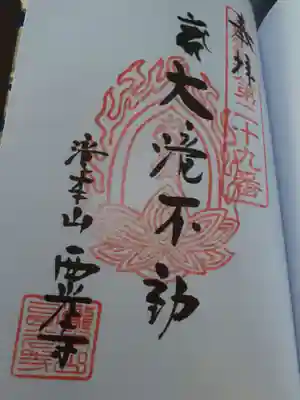 奉拝
第二十九番
大滝不動
滝本山 西光寺